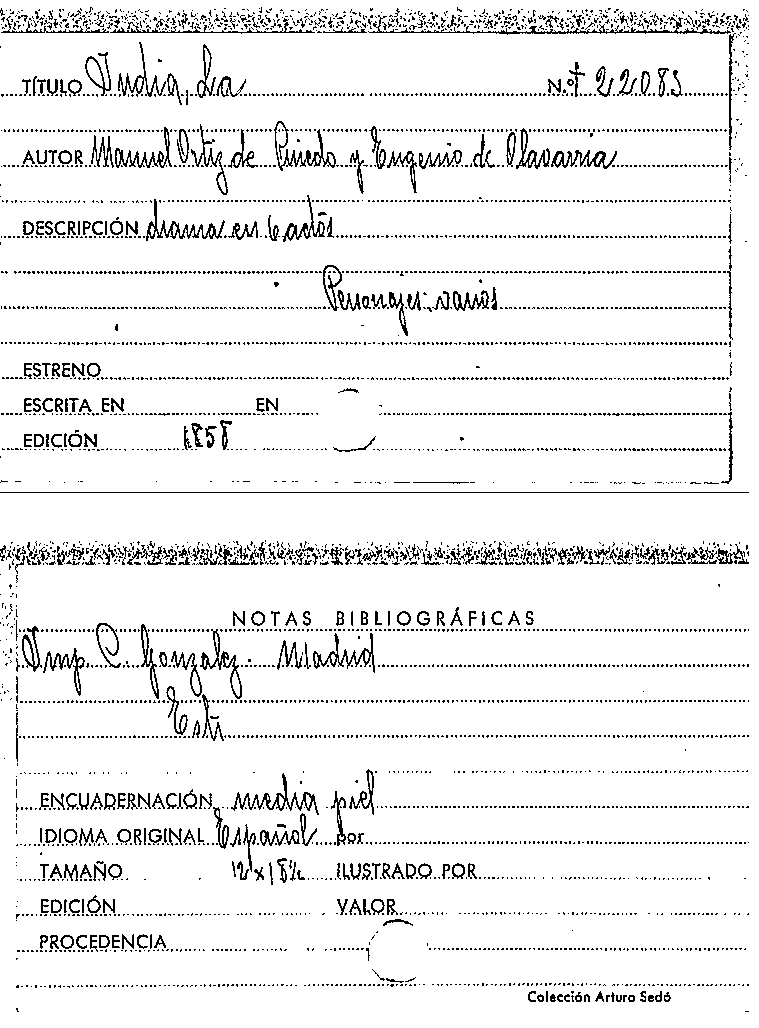 TÍTULO India, La N.º † 22083
AUTOR Manuel Ortiz de Pinedo y Eugenio de Olavarria
DESCRIPCIÓN drama en 6 actos
Personajes: varios
ESTRENO
ESCRITA EN EN
EDICIÓN 1858
NOTAS BIBLIOGRÁFICAS
Imp. C. Gonzalez. Madrid
ENCUADERNACIÓN media piel
IDIOMA ORIGINAL Español por
TAMAÑO 12 x 18½ ILUSTRADO POR
EDICIÓN VALOR
PROCEDENCIA
Colección Arturo Sedó